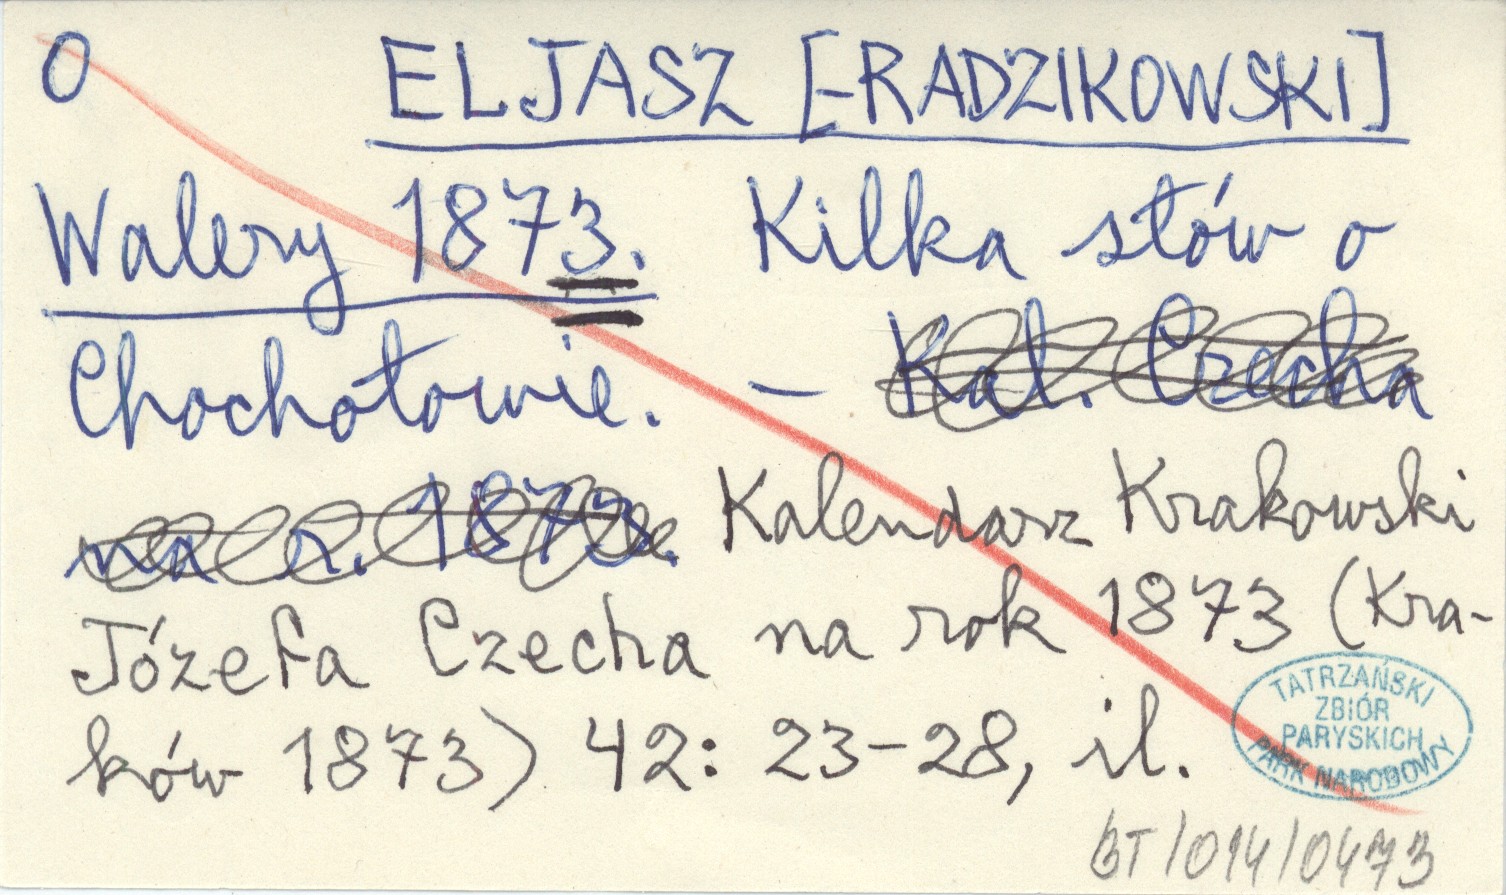 O ELJASZ [-RADZIKOWSKI]
Walery 1873. Kilka słów o
Chochołowie. – Kal. Czecha
na r. 1873. Kalendarz Krakowski
Józefa Czecha na rok 1873 (Kra-
ków 1873) 42: 23-28, il.
TATRZAŃSKI
ZBIÓR
PARYSKICH
PARK NARODOWY
BT/014/0473